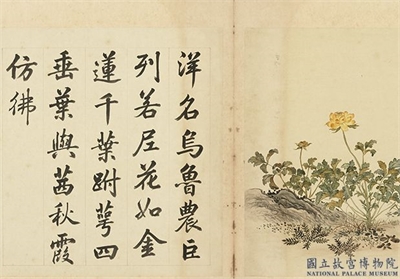 洋名烏魯農臣
列若屈花如金
蓮千葉跗萼四
垂葉與茜秋霞
仿彿
國立故宮博物院
NATIONAL PALACE MUSEUM